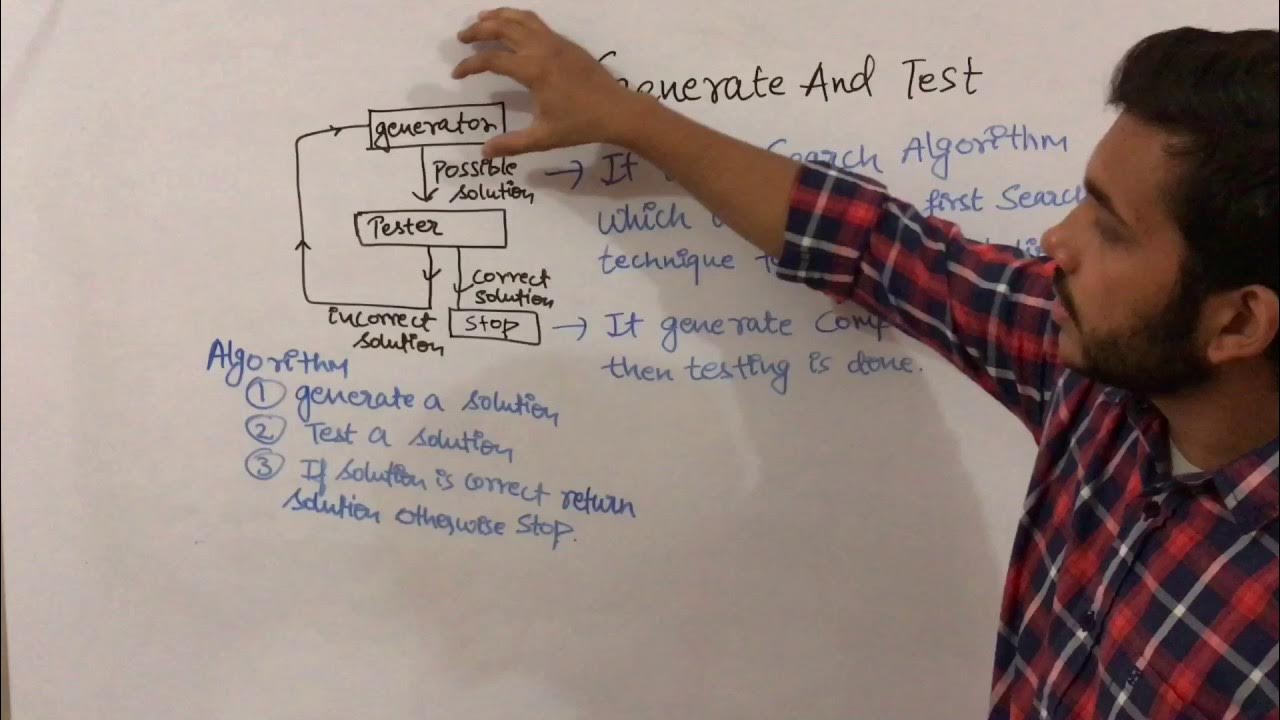 Generate And Test
generator
Possible
solution
Tester
correct
solution
incorrect
solution
Stop
→ It Search Algorithm
which first Search
technique
→ It generate
then testing is done.
Algorithm
① generate a solution
② Test a solution
③ If solution is correct return
solution otherwise Stop.